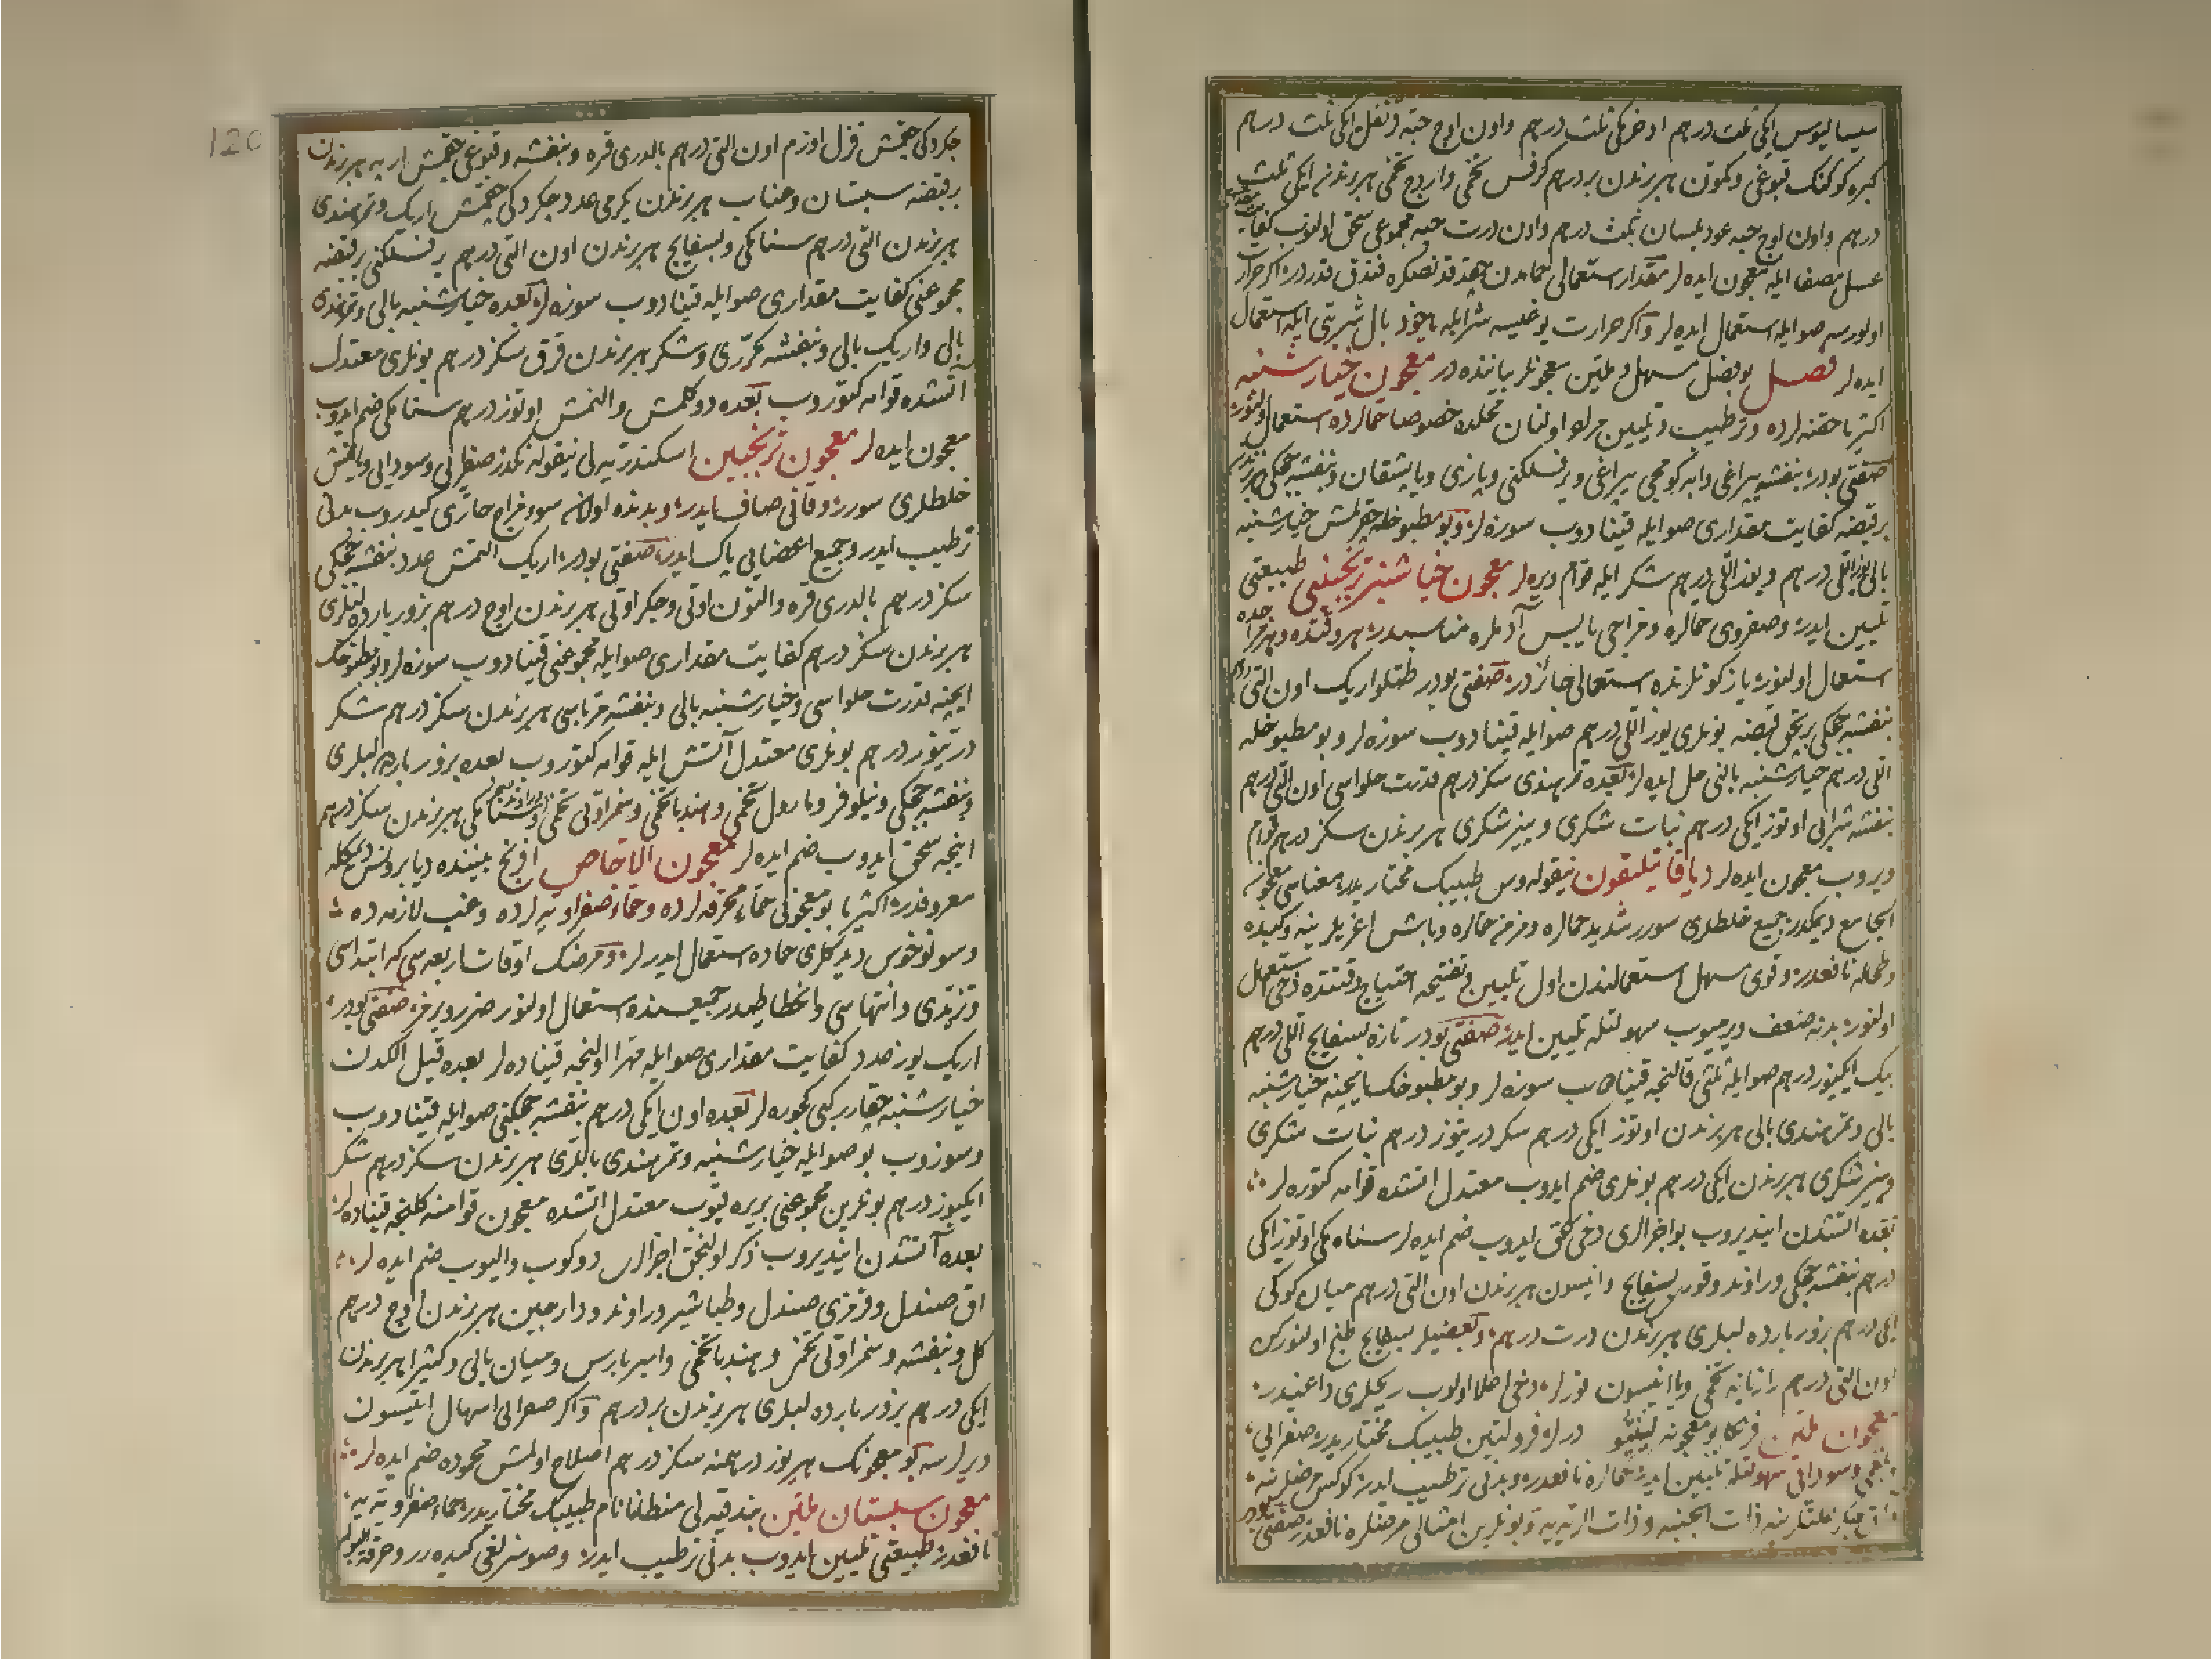 سیسالیوس ایکی ثلث درهم اوخر ایکی ثلث درهم واون اوج حبه قرنفل ایکی ثلث درهم
کبره کوکنک قبوغی وکمون هر برندن بر درهم کرفس تخمی واروج تخمی هر برندن ایکی ثلث
درهم واون اوج حبه عود بلسان ثلث درهم واون درت حبه مجموعی سحق اولنوب کفایت
عسل مصفا ایله معجون ایده لر مقدار استعمالی حمامدن چقدقدنصکره فندق قدردر اکر حرارت
اولورسه صو ایله استعمال ایده لر واکر حرارت یوغیسه شراب ایله یاخود بال شربتی ایله استعمال
ایده لر فصل بو فصل مسهل وملین معجونلر بیاننده در معجون خیارشنبه
اکثریا حقنه لرده وترطیب وتلیین مراد اولنان محلده خصوصا حمالرده استعمال اولنور
صنعتی بودر بنفشه یپراغی وابه کومجی یپراغی ویر فسلکنی وپازی ویاپشقان وبنفشه چچکی هر برندن
بر قبضه کفایت مقداری صو ایله قینادوب سوزه لر وبو مطبوخله چقرلمش خیارشنبه
بالی یوز اللی درهم ویوز اللی درهم شکر ایله قوام ویره لر معجون خیارشنبر ترنجبینی طبیعتی
تلیین ایدر وصفروی حمالره ومزاجی یابس آدملره مناسبدر هر وقتده وهر مزاجده
استعمال اولنور یاز کونلرنده استعمالی جائزدر صنعتی بودر طتلو اریک اون التی درهم
بنفشه چچکی بر بچق قبضه بونلری یوز اللی درهم صو ایله قینادوب سوزه لر وبو مطبوخله
اللی درهم خیارشنبه بالنی حل ایده لر بعده تمرهندی سکز درهم قدرت حلواسی اون التی درهم
بنفشه شرابی اوتوز ایکی درهم نبات شکری وبینر شکری هر برندن سکز درهم قوام
ویروب معجون ایده لر دیاقاتیلیقون نیقولاوس طبیبک مختاریدر معناسی معجون
الجامع دیمکدر جمیع خلطلری سورر شدید حمالره ومزمن حمالره وباش اغریلرینه وکبده
وطحاله نافعدر وقوی مسهل استعمالندن اول تلیین وتفتیحه احتیاج وقتنده دخی استعمال
اولنور بدنه ضعف ویرمیوب سهولتله تلیین ایدر صنعتی بودر تازه بسفایج اللی درهم
بیک ایکیوز درهم صو ایله ثلثی قالنجه قینادوب سوزه لر وبو مطبوخک ایچینه خیارشنبه
بالی وتمرهندی بالی هر برندن اوتوز ایکی درهم سکر درتیوز درهم نبات شکری
وبینر شکری هر برندن ایکی درهم بونلری ضم ایدوب معتدل اتشده قوامه کتوره لر
بعده اتشدن ایندیروب بو اجزالری دخی سحق ایدوب ضم ایده لر سناء مکی اوتوز ایکی
درهم بنفشه چچکی وراوند وقوری بسفایج وانیسون هر برندن اون التی درهم میان کوکی
ایکی درهم بزور بارده لبلری هر برندن درت درهم وبعضیلر بسفایج طبخ اولنورکن
اون التی درهم رازیانه تخمی ویا انیسون قورلر دخی اعلا اولوب ریحلری داغیدر
معجون ملین فرنکا بو معجونه لینیتیو درلر فرولتین طبیبک مختاریدر صفرایی
بلغمی وسودایی سهولتله تلیین ایدر حمالره نافعدر وبدنی ترطیب ایدر کوکس مرضلرینه
جکر علتلرینه ذات الجنبه وذات الریه یه وبونلرین امثالی مرضلره نافعدر صنعتی بودر
جکردکی چقمش قزل اوزم اون التی درهم بالدری قره وبنفشه وقبوغی چقمش ارپه هر برندن
بر قبضه سبستان وعناب هر برندن یکرمی عدد جکردکی چقمش اریک وتمرهندی
هر برندن التی درهم سنا مکی وبسفایج هر برندن اون التی درهم یر فسلکنی بر قبضه
مجموعنی کفایت مقداری صو ایله قینادوب سوزه لر بعده خیارشنبه بالی وتمرهندی
بالی واریک بالی وبنفشه مکرری وشکر هر برندن قرق سکز درهم بونلری معتدل
اتشده قوامه کتوروب بعده دوکلمش والنمش اوتوز درهم سنا مکی ضم ایدوب
معجون ایده لر معجون ترنجبین اسکندریه لی نیقولانکدر صفرایی وسودایی ویانمش
خلطلری سورر وقانی صاف ایدر وبدنده اولان سوء مزاج حاری کیدروب بدنی
ترطیب ایدر وجمیع اعضایی پاک ایدر صنعتی بودر اریک التمش عدد بنفشه چچکی
سکز درهم بالدری قره والتون اوتی وجکر اوتی هر برندن اوج درهم بزور بارده لبلری
هر برندن سکز درهم کفایت مقداری صو ایله مجموعنی قینادوب سوزه لر وبو مطبوخک
ایچینه قدرت حلواسی وخیارشنبه بالی وبنفشه مرباسی هر برندن سکز درهم شکر
درتیوز درهم بونلری معتدل آتش ایله قوامه کتوروب بعده بزور بارده لبلری
وبنفشه چچکی ونیلوفر ومارول تخمی وهندبا تخمی وسمزاوتی تخمی وراوند وسنا مکی هر برندن سکز درهم
اینجه سحق ایدوب ضم ایده لر معجون الاجاص افرنج بیننده دیابرونس دیمکله
معروفدر اکثریا بو معجونی حماء محرقه لرده وحماء صفراویه لرده وغب لازمه ده
وسونوخوس دیدکلری حماده استعمال ایدرلر ومرضک اوقات اربعه سی که ابتداسی
وتزیدی وانتهاسی وانحطاطیدر جمیعسنده استعمال اولنور ضرر ویرمز صنعتی بودر
اریک یوز عدد کفایت مقداری صو ایله مهرا اولنجه قیناده لر بعده قیل الکدن
خیارشنبه چقارر کبی کچوره لر بعده اون ایکی درهم بنفشه چچکنی صو ایله قینادوب
وسوزوب بو صو ایله خیارشنبه وتمرهندی باللری هر برندن سکز درهم شکر
ایکیوز درهم بونلرین مجموعنی بر یره قیوب معتدل اتشده معجون قوامنه کلنجه قیناده لر
بعده آتشدن ایندیروب ذکر اولنجق اجزالری دوکوب والیوب ضم ایده لر
اق صندل وقرمزی صندل وطباشیر وراوند ودارچین هر برندن اوج درهم
کل وبنفشه وسمزاوتی تخمی وهندبا تخمی وامبرباریس ومیان بالی وکثیرا هر برندن
ایکی درهم بزور بارده لبلری هر برندن بر درهم واکر صفرایی اسهال ایتسون
دیرلرسه بو معجونک هر یوز درهمنه سکز درهم اصلاح اولنمش محموده ضم ایده لر
معجون سبستان ملین بندقیه لی منطانا نام طبیبک مختاریدر حماء صفرویه یه
نافعدر طبیعتی تلیین ایدوب بدنی ترطیب ایدر وصوسزلغی کیده رر وحرقة البول